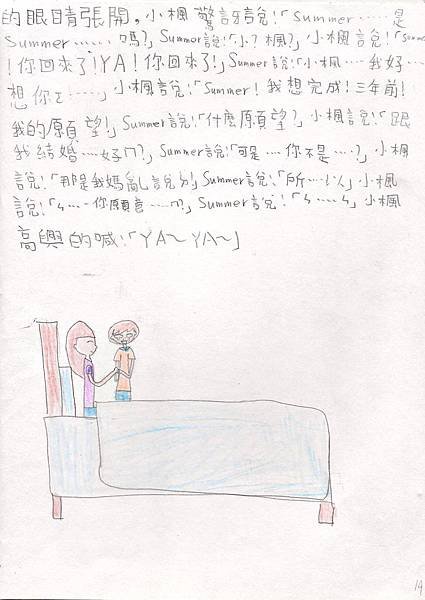 的眼睛張開。小楓驚訝說:「Summer……是
Summer……嗎?」Summer說:「小?楓?」小楓說:「Summer
!你回來了!YA!你回來了!」Summer說:「小楓……我好…
想你ㄛ……」小楓說:「Summer!我想完成!三年前!
我的原願望!」Summer說:「什麼原願望?」小楓說:「跟
我結婚……好ㄇ?」Summer說:「可是……你不是……?」小楓
說:「那是我媽亂說ㄉ」Summer說:「所…以」小楓
說:「ㄣ……你願意……ㄇ?」Summer說:「ㄣ……ㄣ」小楓
高興的喊:「YA~YA~」
14